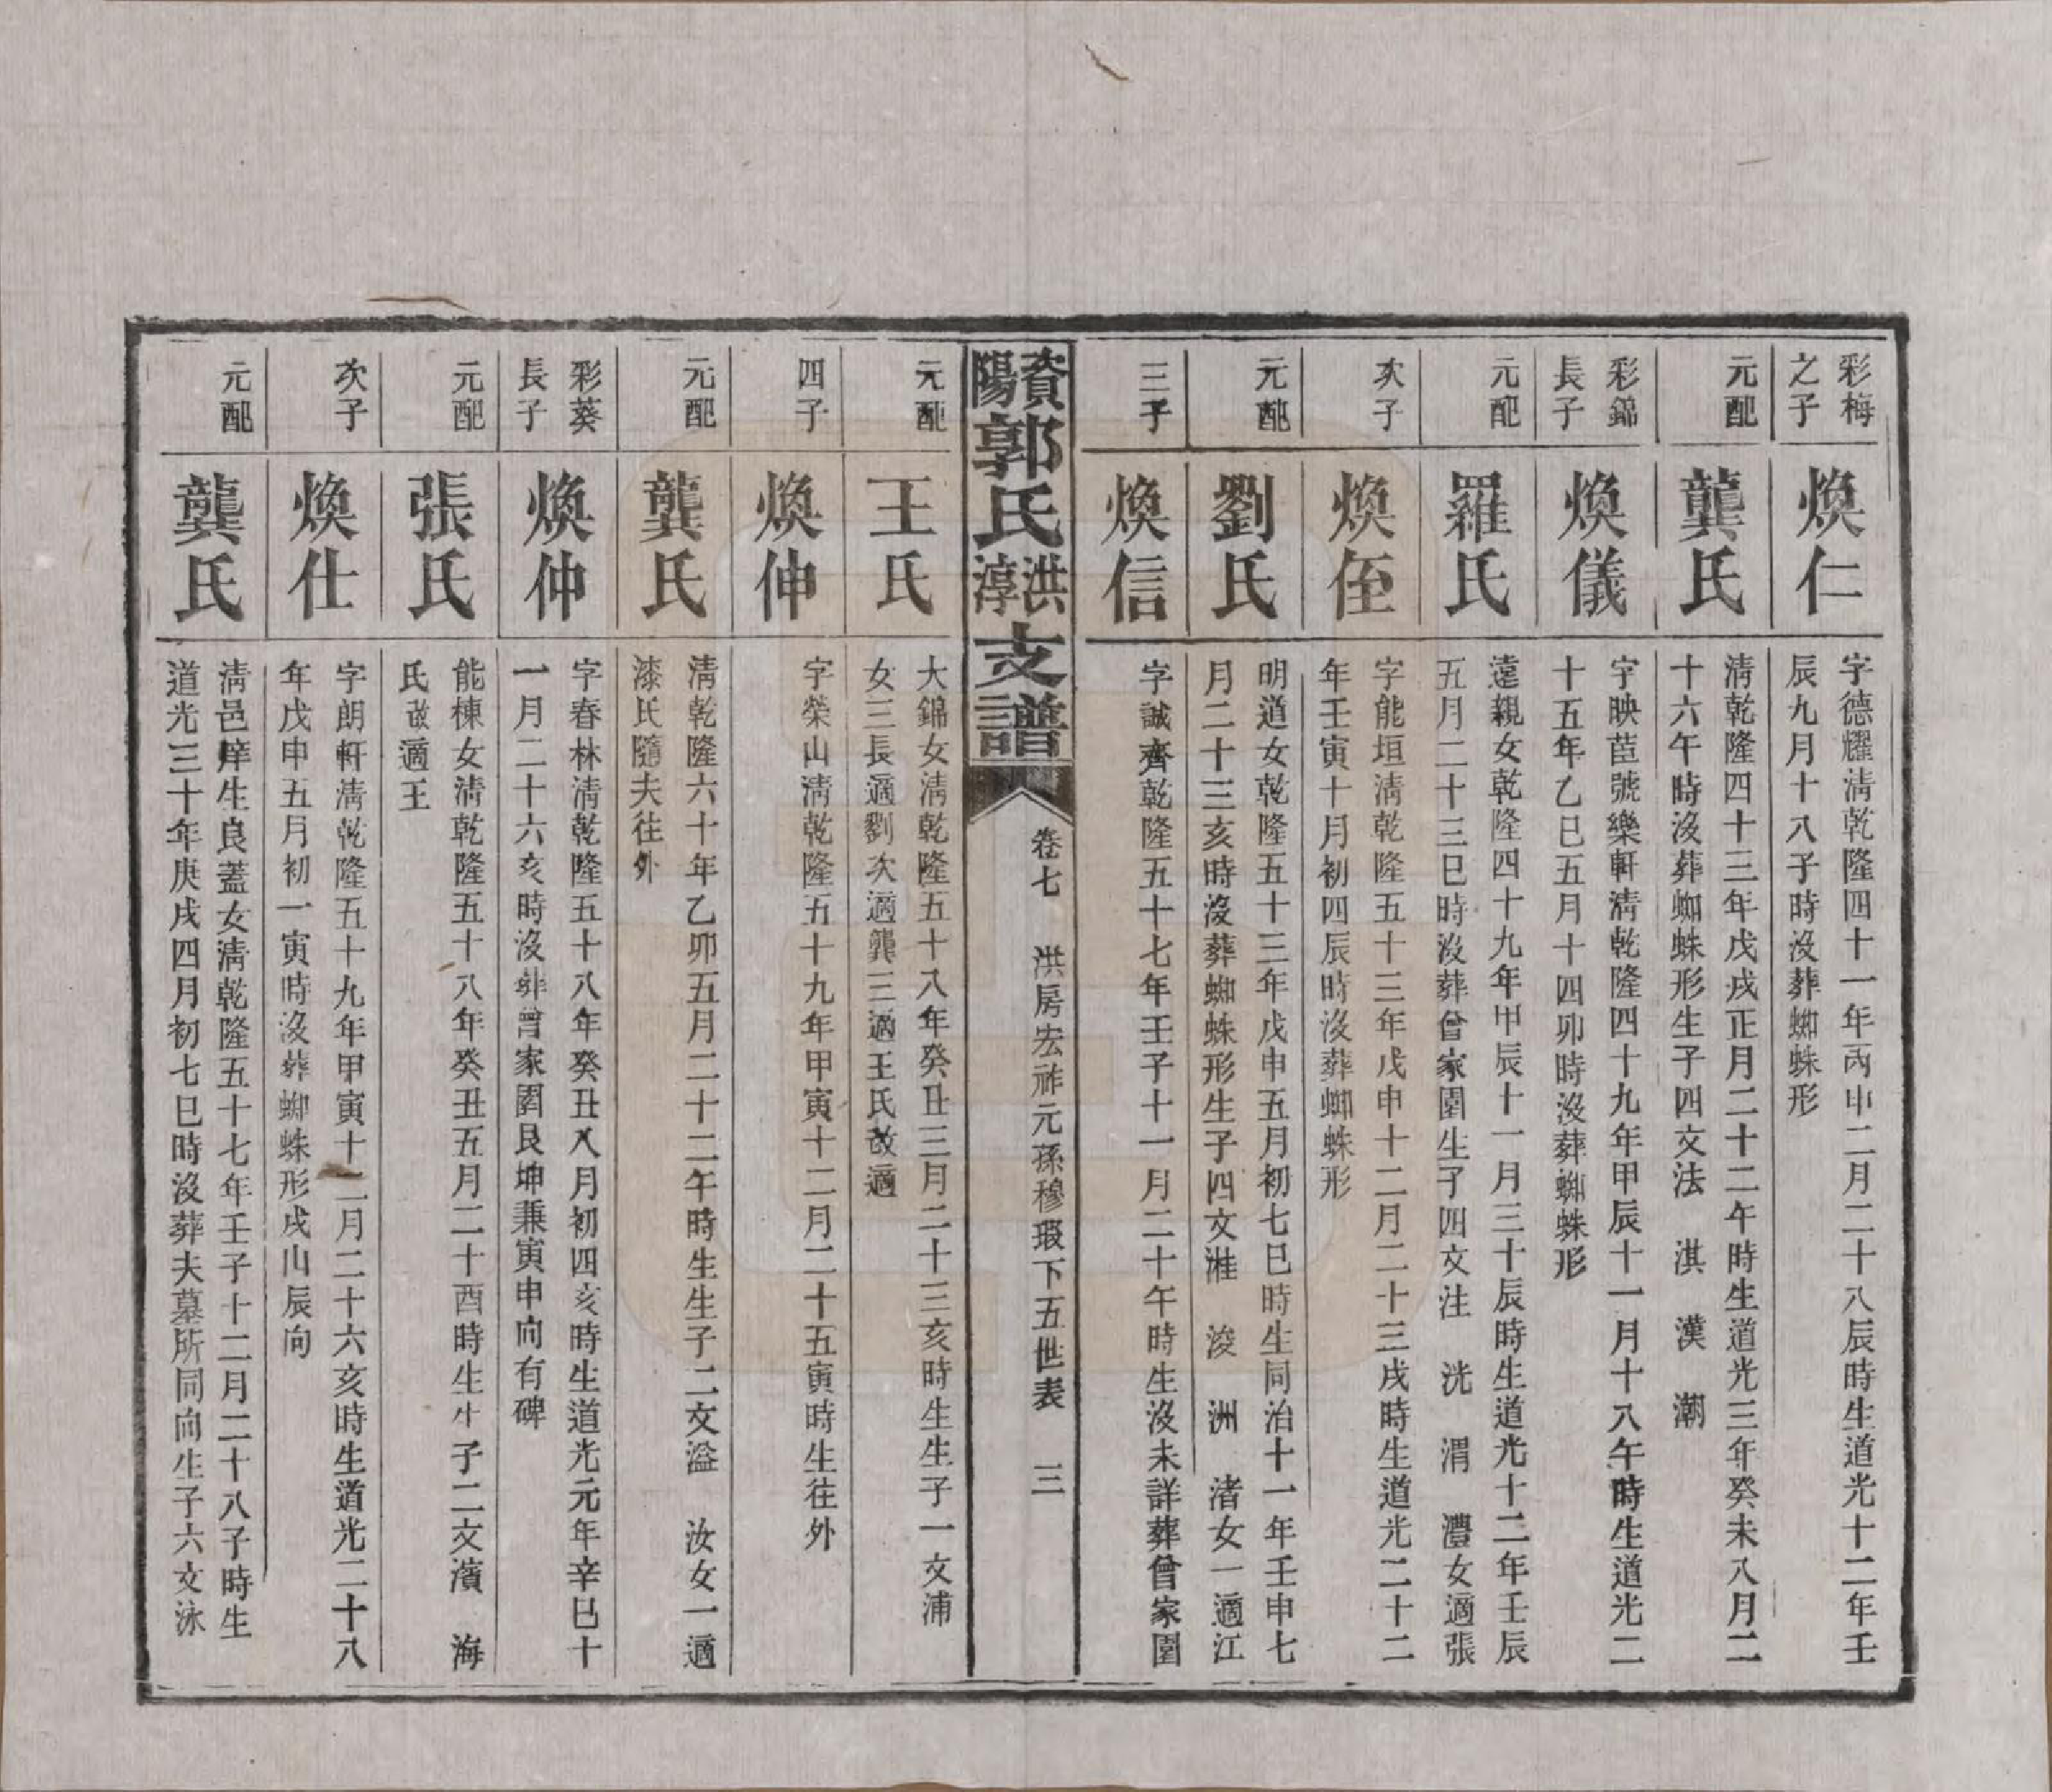 彩梅
之子
煥仁
字德耀淸乾隆四十一年丙申二月二十八辰時生道光十二年壬
辰九月十八子時沒葬蜘蛛形
元配
龔氏
淸乾隆四十三年戊戌正月二十二午時生道光三年癸未八月二
十六午時沒葬蜘蛛形生子四文法　淇　漢　潮
彩錦
長子
煥儀
字映莒號樂軒淸乾隆四十九年甲辰十一月十八午時生道光二
十五年乙巳五月十四卯時沒葬蜘蛛形
元配
羅氏
遠親女乾隆四十九年甲辰十一月三十辰時生道光十二年壬辰
五月二十三巳時沒葬曾家園生子四文注　洸　渭　灃女適張
次子
煥侄
字能垣淸乾隆五十三年戊申十二月二十三戌時生道光二十二
年壬寅十月初四辰時沒葬蜘蛛形
元配
劉氏
明道女乾隆五十三年戊申五月初七巳時生同治十一年壬申七
月二十三亥時沒葬蜘蛛形生子四文淮　浚　洲　渚女一適江
三子
煥信
字誠齊乾隆五十七年壬子十一月二十午時生沒未詳葬曾家園
資陽郭氏洪淳支譜
卷七　洪房宏祚元孫穆瑕下五世表　三
元配
王氏
大錦女淸乾隆五十八年癸丑三月二十三亥時生生子一文浦
女三長適劉次適龔三適王氏故適
四子
煥伸
字榮山淸乾隆五十九年甲寅十二月二十五寅時生往外
元配
龔氏
淸乾隆六十年乙卯五月二十二午時生生子二文溢　汝女一適
漆氏隨夫往外
彩葵
長子
煥仲
字春林淸乾隆五十八年癸丑八月初四亥時生道光元年辛巳十
一月二十六亥時沒葬曾家園艮坤兼寅申向有碑
元配
張氏
能棟女淸乾隆五十八年癸丑五月二十酉時生生子二文濱　海
氏故適王
次子
煥仕
字朗軒淸乾隆五十九年甲寅十二月二十六亥時生道光二十八
年戊申五月初一寅時沒葬蜘蛛形戌山辰向
元配
龔氏
淸邑庠生良蓋女淸乾隆五十七年壬子十二月二十八子時生
道光三十年庚戌四月初七巳時沒葬夫墓所同向生子六文泳